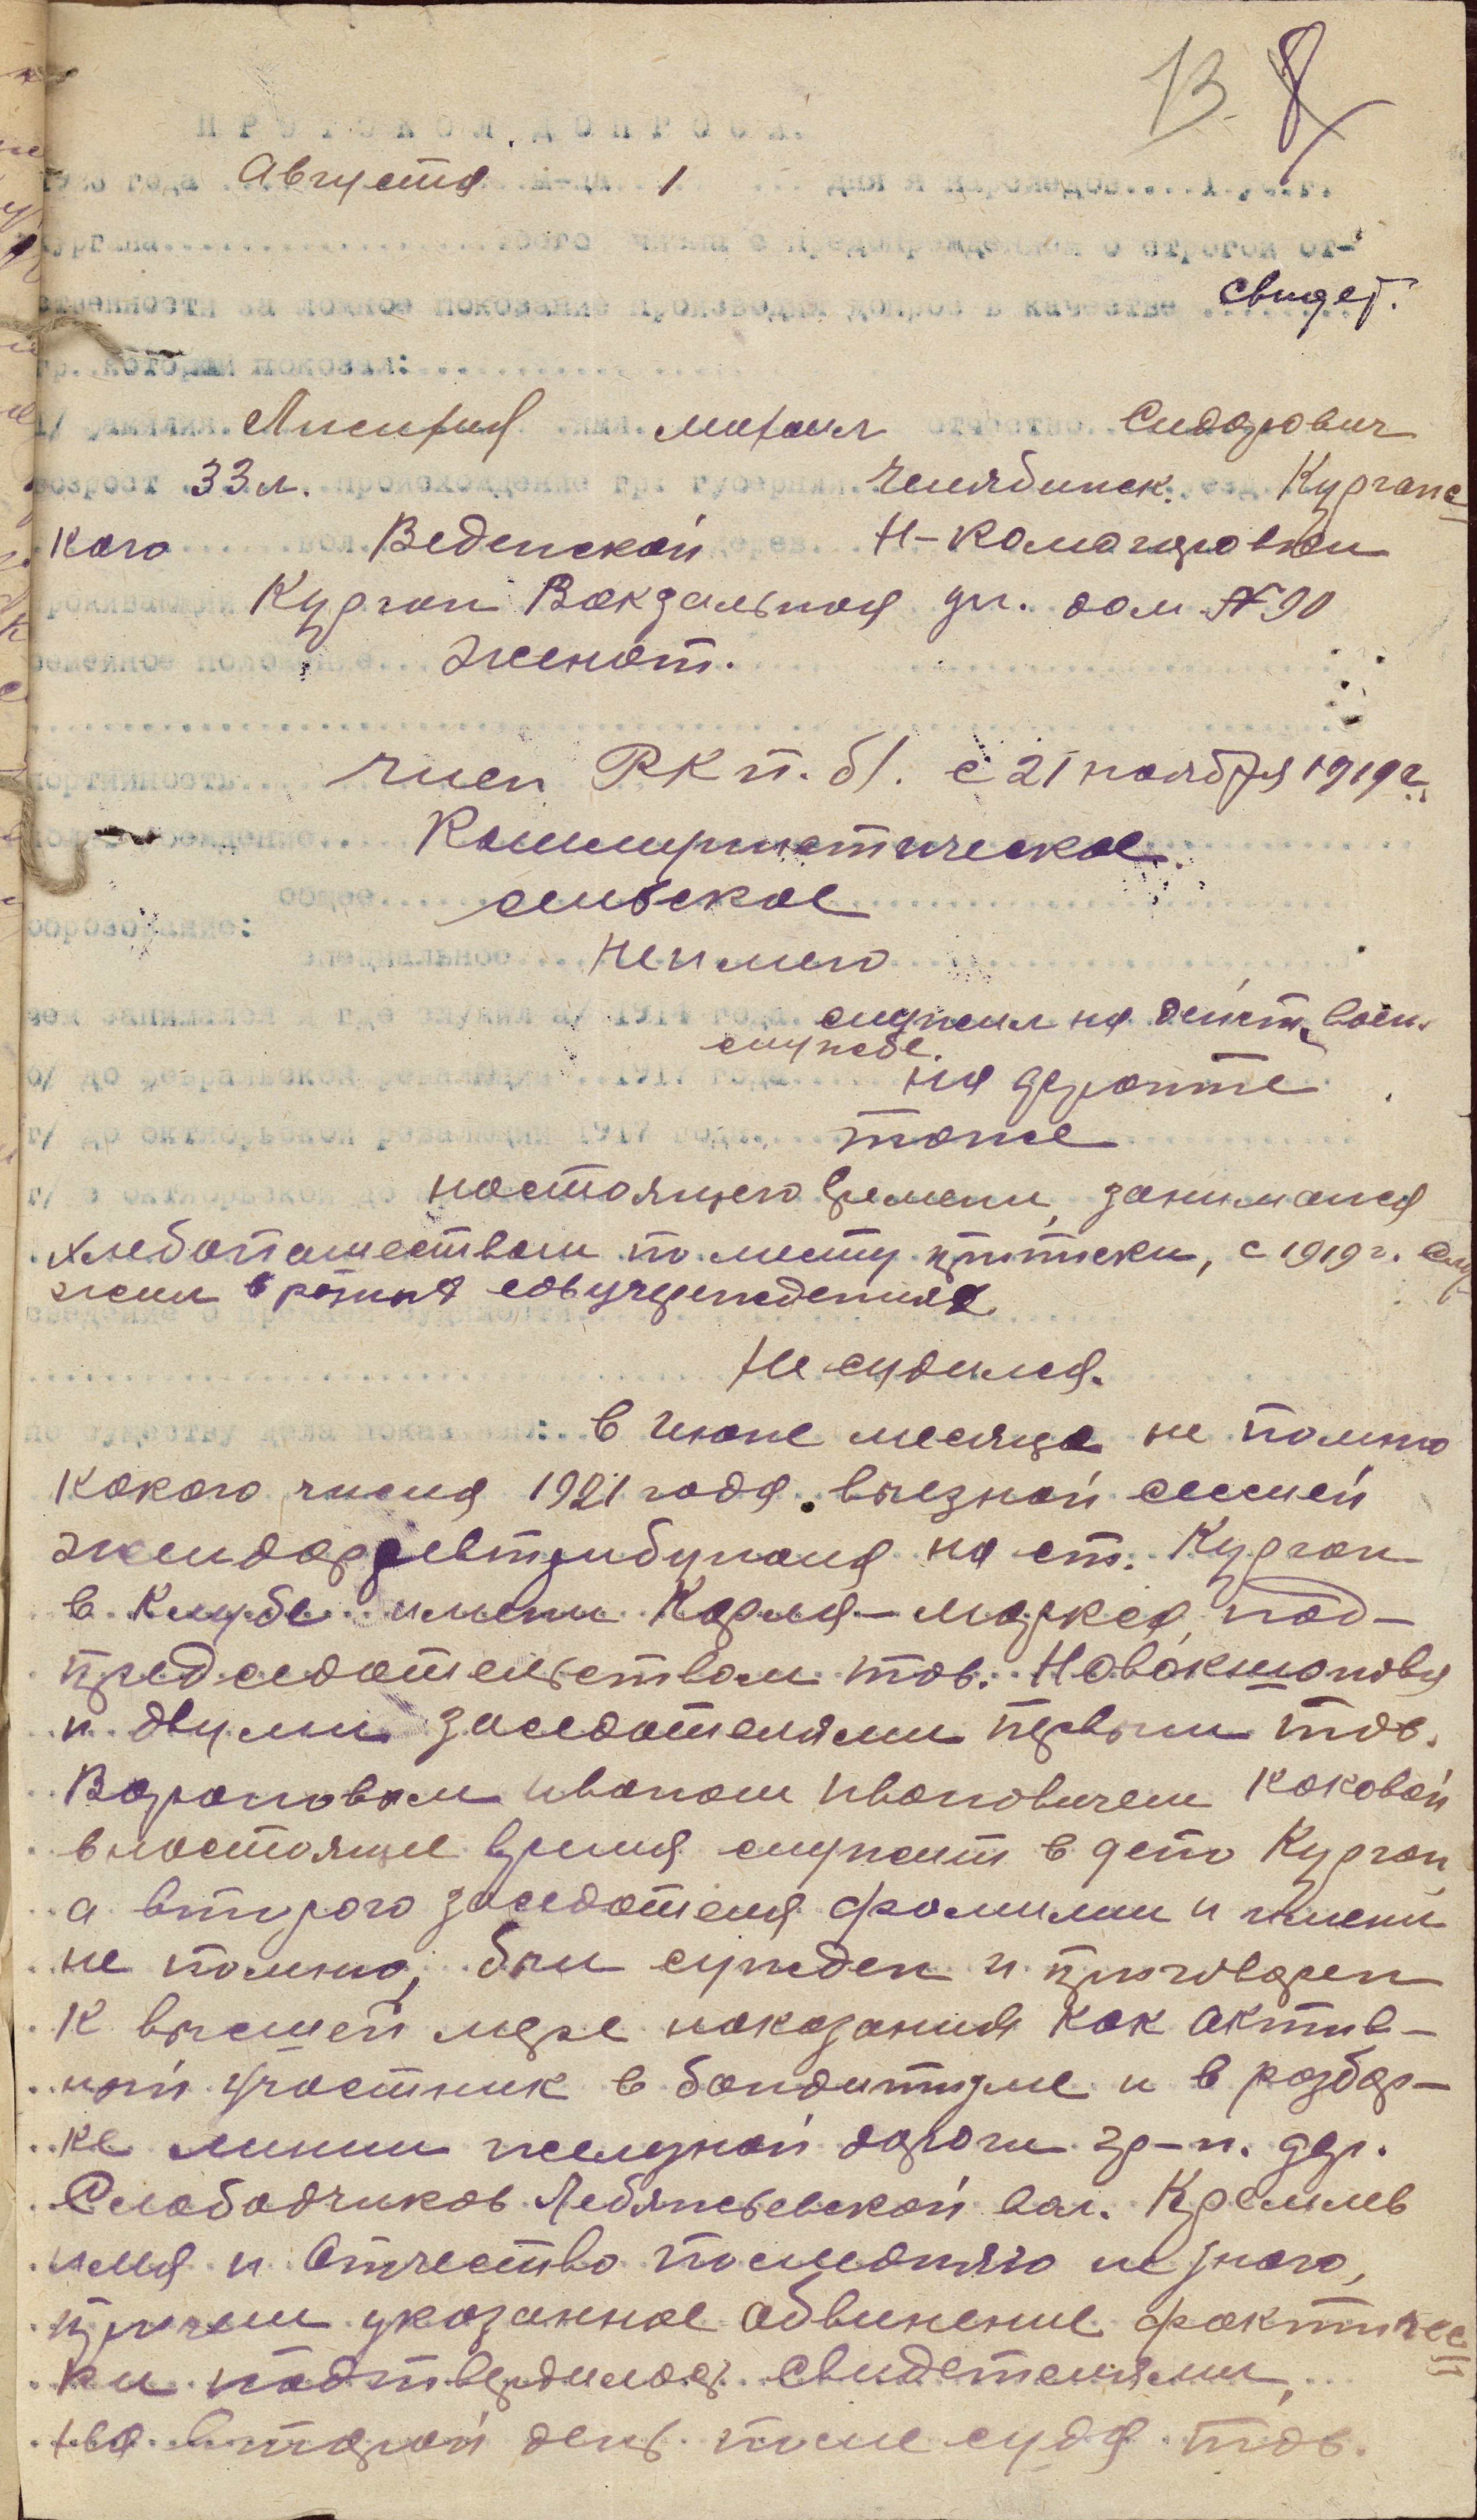 13. 8
ПРОТОКОЛ ДОПРОСА.
года Августа м-ца 1 дня я
кургана сего числа с предупреждением о строгой от-
ственности за ложное показание производил допрос в качестве свидет.
гр. который показал:
фамилия Лисихия имя михаил отчество Сидорович
возраст 33 л. происхождение гр. губернии Челябинск. уезд. Курганс
кого вол. Веденской дерев. Н-Камагаровки
проживающий Курган Вокзальная ул. дом № 90
семейное положение женат.
партийность член РК п. б/. с 21 ноября 1919 г.
Коммунистическое
общее сельское
образование:
специальное неимею
чем занимался и где служил а/ 1914 года служил на дейст. воен.
службе.
б/ до февральской революции 1917 года на фронте
в/ до октябрьской революции 1917 года тоже
г/ с октябрьской до настоящего времени, занимался
хлебопашеством по месту приписки, с 1919 г. слу
жил в разных совучреждениях
сведение о судимости
Не судился.
по существу дела показываю: в Июне месяце не помню
какого числа 1921 года. выезной сессией
жендорревтрибунала на ст. Курган
в Клубе имени Карла-маркса, под-
председательством тов. Новокшонова
и двумя заседателями первым тов.
Вороновым иваном ивановичем каковой
внастоящее время служит в депо Курган,
а второго заседателя фамилии и имени
не помню, был сужден и приговорен
к высшей мере наказания как актив-
ный участник в бандитизме и в разбор-
ке линии железной дороги гр-н. дер.
Слободчиков Лебяжьевской вол. Кремлев
имя и Отчество последняго не знаю,
причем указанное обвинение фактичес
ки подтвердилось свидетелями,
На второй день после суда тов.